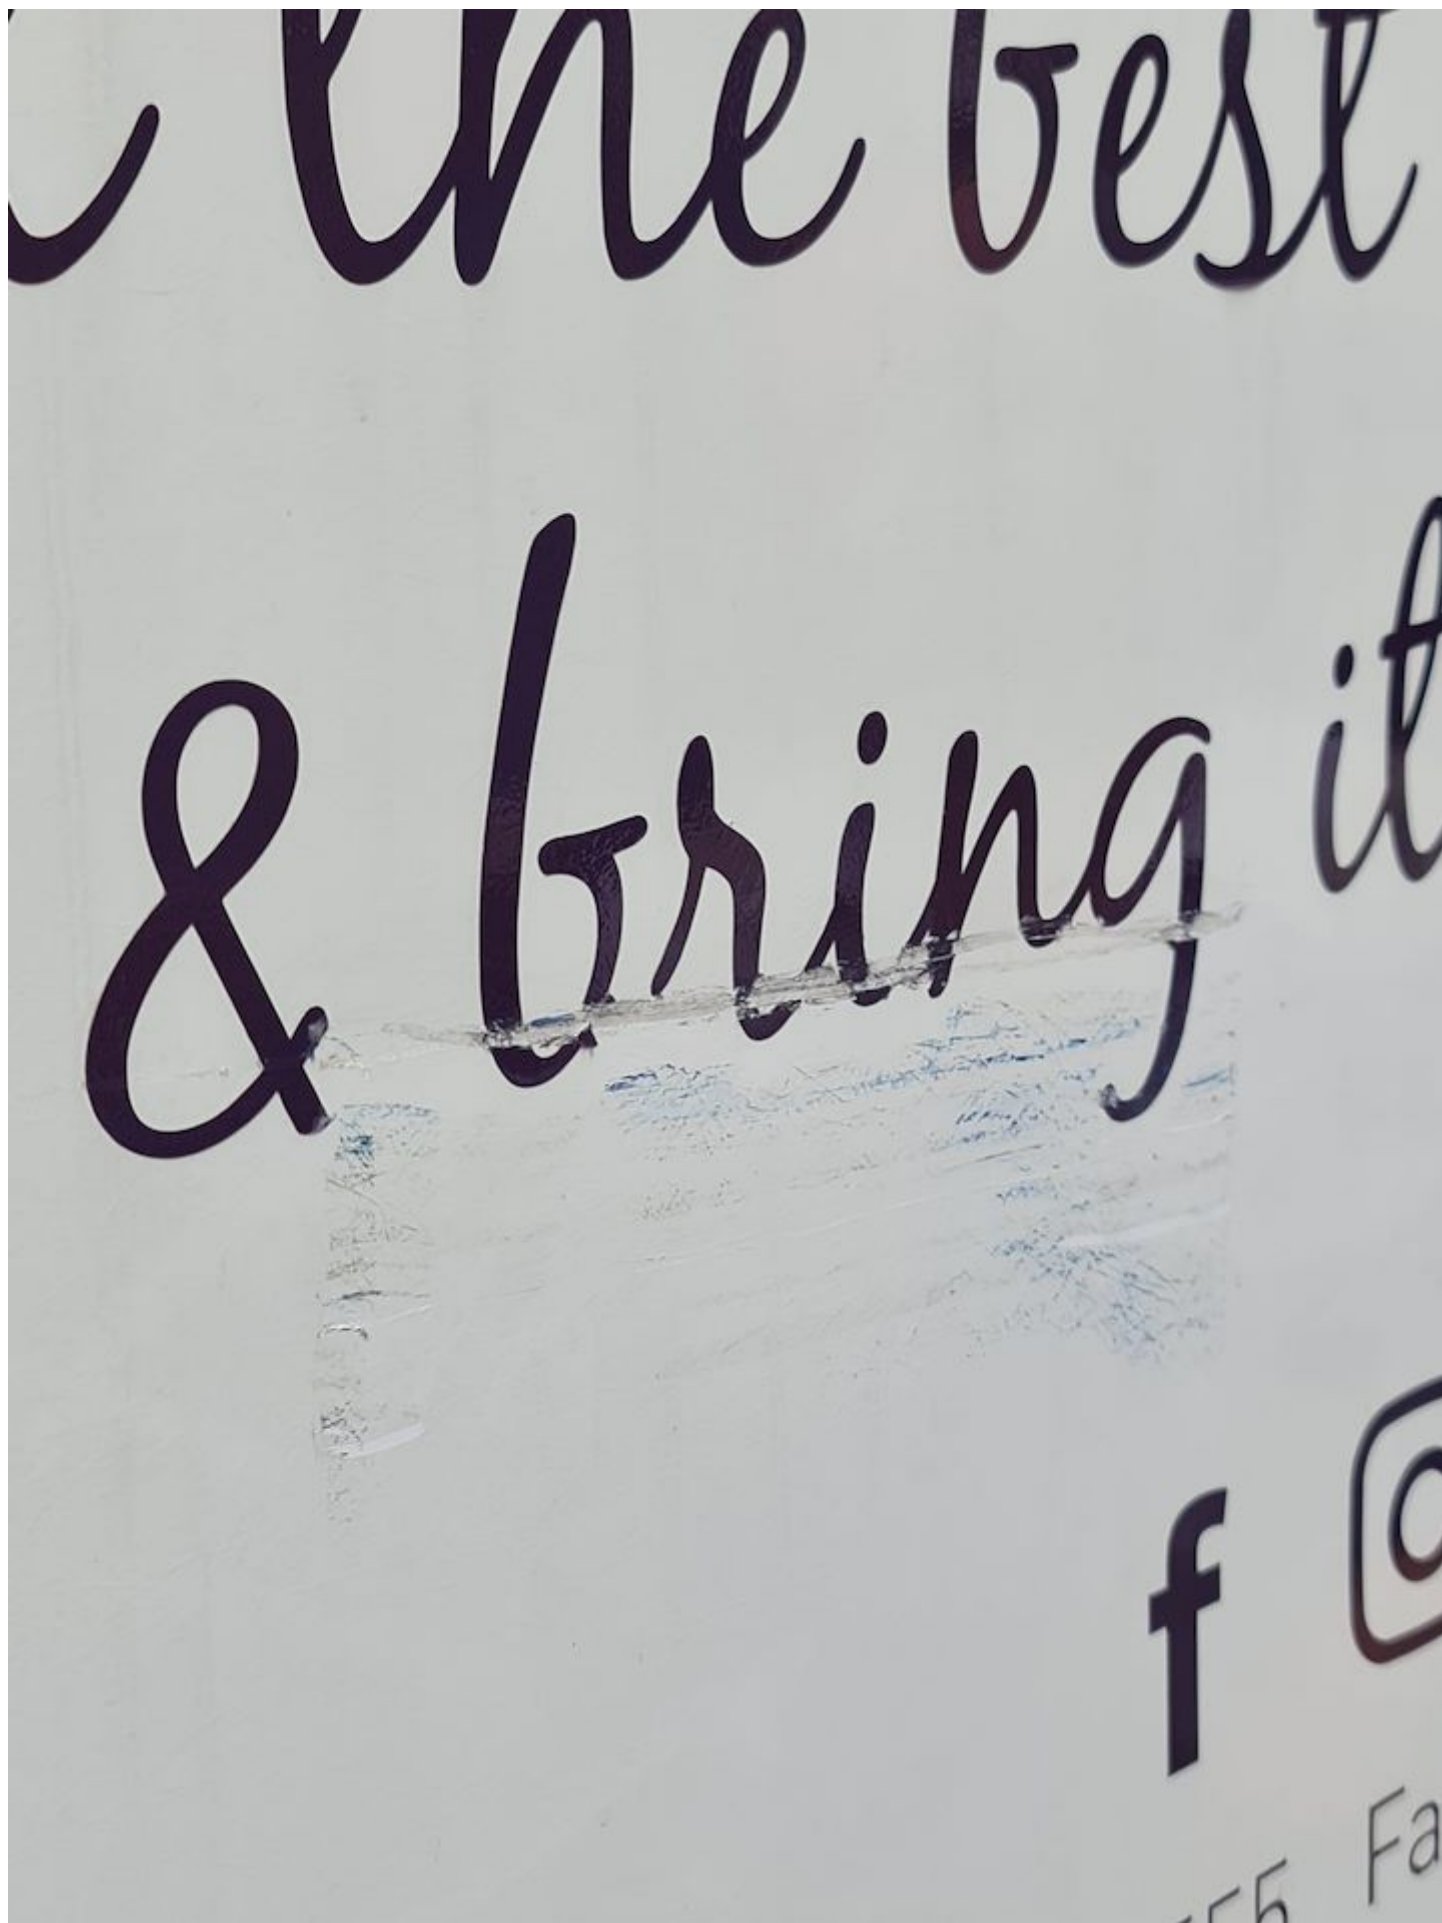 the best
& bring it
f